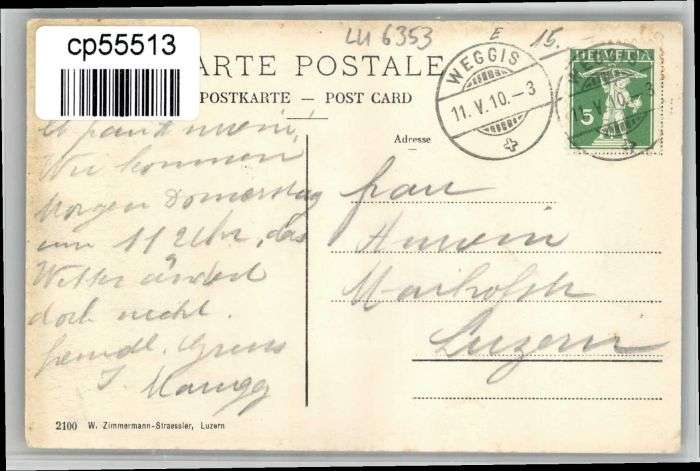 cp55513
LU 6353
E
15.
CARTE POSTALE
POSTKARTE — POST CARD
WEGGIS
11.V.10.–3
HELVETIA
5
Adresse
Wir kommen
Morgen Donnerstag
um 11 Uhr, das
Wetter ändert
doch nicht.
freundl. Gruss
Frau
Luzern
2100 W. Zimmermann-Straessler, Luzern